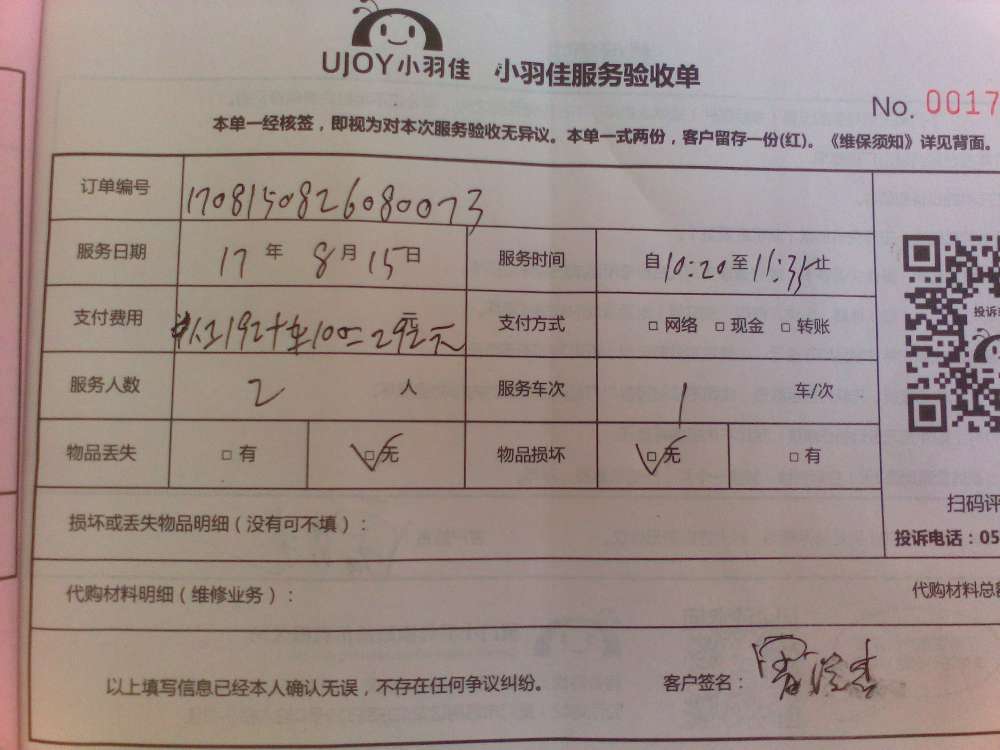 UJOY小羽佳 小羽佳服务验收单
No. 0017
本单一经核签，即视为对本次服务验收无异议。本单一式两份，客户留存一份(红)。《维保须知》详见背面。
订单编号 1708150826080073
服务日期 17 年 8 月 15 日 服务时间 自 10:20 至 11:35 止
支付费用 人工192+车100=292元 支付方式 □ 网络 □ 现金 □ 转账
投诉
服务人数 2 人 服务车次 1 车/次
物品丢失 □ 有 □ 无 物品损坏 □ 无 □ 有
扫码评
损坏或丢失物品明细（没有可不填）：
投诉电话：05
代购材料明细（维修业务）： 代购材料总
以上填写信息已经本人确认无误，不存在任何争议纠纷。 客户签名：